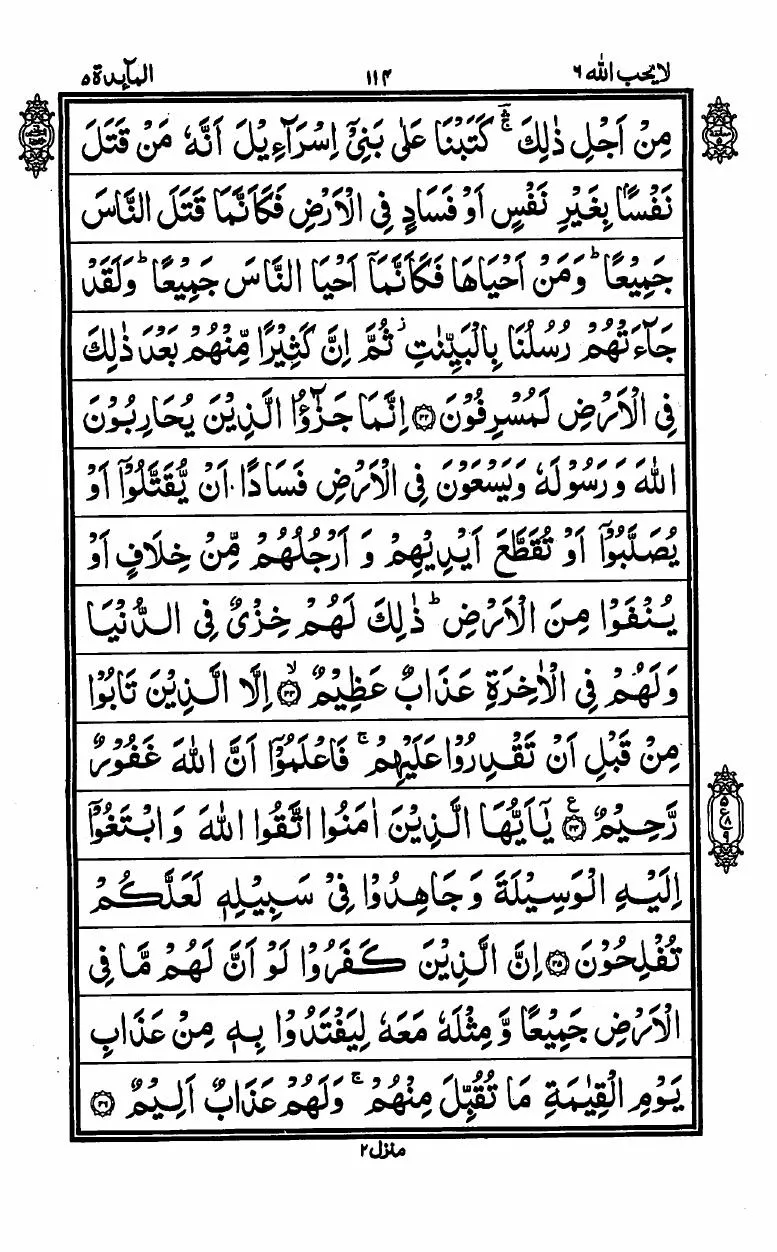 لا یحب الله ٦
١١٤
المآىِٕدة ٥
مِنْ اَجْلِ ذٰلِكَ ۛۚ كَتَبْنَا عَلٰى بَنِیْۤ اِسْرَآءِیْلَ اَنَّهٗ مَنْ قَتَلَ
نَفْسًۢا بِغَیْرِ نَفْسٍ اَوْ فَسَادٍ فِی الْاَرْضِ فَكَاَنَّمَا قَتَلَ النَّاسَ
جَمِیْعًا ؕ وَمَنْ اَحْیَاهَا فَكَاَنَّمَاۤ اَحْیَا النَّاسَ جَمِیْعًا ؕ وَلَقَدْ
جَآءَتْهُمْ رُسُلُنَا بِالْبَیِّنٰتِ ؗ ثُمَّ اِنَّ كَثِیْرًا مِّنْهُمْ بَعْدَ ذٰلِكَ
فِی الْاَرْضِ لَمُسْرِفُوْنَ ۝٣٢ اِنَّمَا جَزٰٓؤُا الَّذِیْنَ یُحَارِبُوْنَ
اللهَ وَرَسُوْلَهٗ وَیَسْعَوْنَ فِی الْاَرْضِ فَسَادًا اَنْ یُّقَتَّلُوْۤا اَوْ
یُصَلَّبُوْۤا اَوْ تُقَطَّعَ اَیْدِیْهِمْ وَ اَرْجُلُهُمْ مِّنْ خِلَافٍ اَوْ
یُنْفَوْا مِنَ الْاَرْضِ ؕ ذٰلِكَ لَهُمْ خِزْیٌ فِی الدُّنْیَا
وَلَهُمْ فِی الْاٰخِرَةِ عَذَابٌ عَظِیْمٌ ۝٣٣ ۙ اِلَّا الَّذِیْنَ تَابُوْا
مِنْ قَبْلِ اَنْ تَقْدِرُوْا عَلَیْهِمْ ۚ فَاعْلَمُوْۤا اَنَّ اللهَ غَفُوْرٌ
رَّحِیْمٌ ۝٣٤ ع یٰۤاَیُّهَا الَّذِیْنَ اٰمَنُوا اتَّقُوا اللهَ وَابْتَغُوْۤا
٥
ع ٨
٩
اِلَیْهِ الْوَسِیْلَةَ وَجَاهِدُوْا فِیْ سَبِیْلِهٖ لَعَلَّكُمْ
تُفْلِحُوْنَ ۝٣٥ اِنَّ الَّذِیْنَ كَفَرُوْا لَوْ اَنَّ لَهُمْ مَّا فِی
الْاَرْضِ جَمِیْعًا وَّمِثْلَهٗ مَعَهٗ لِیَفْتَدُوْا بِهٖ مِنْ عَذَابِ
یَوْمِ الْقِیٰمَةِ مَا تُقُبِّلَ مِنْهُمْ ۚ وَلَهُمْ عَذَابٌ اَلِیْمٌ ۝٣٦
منزل ٢